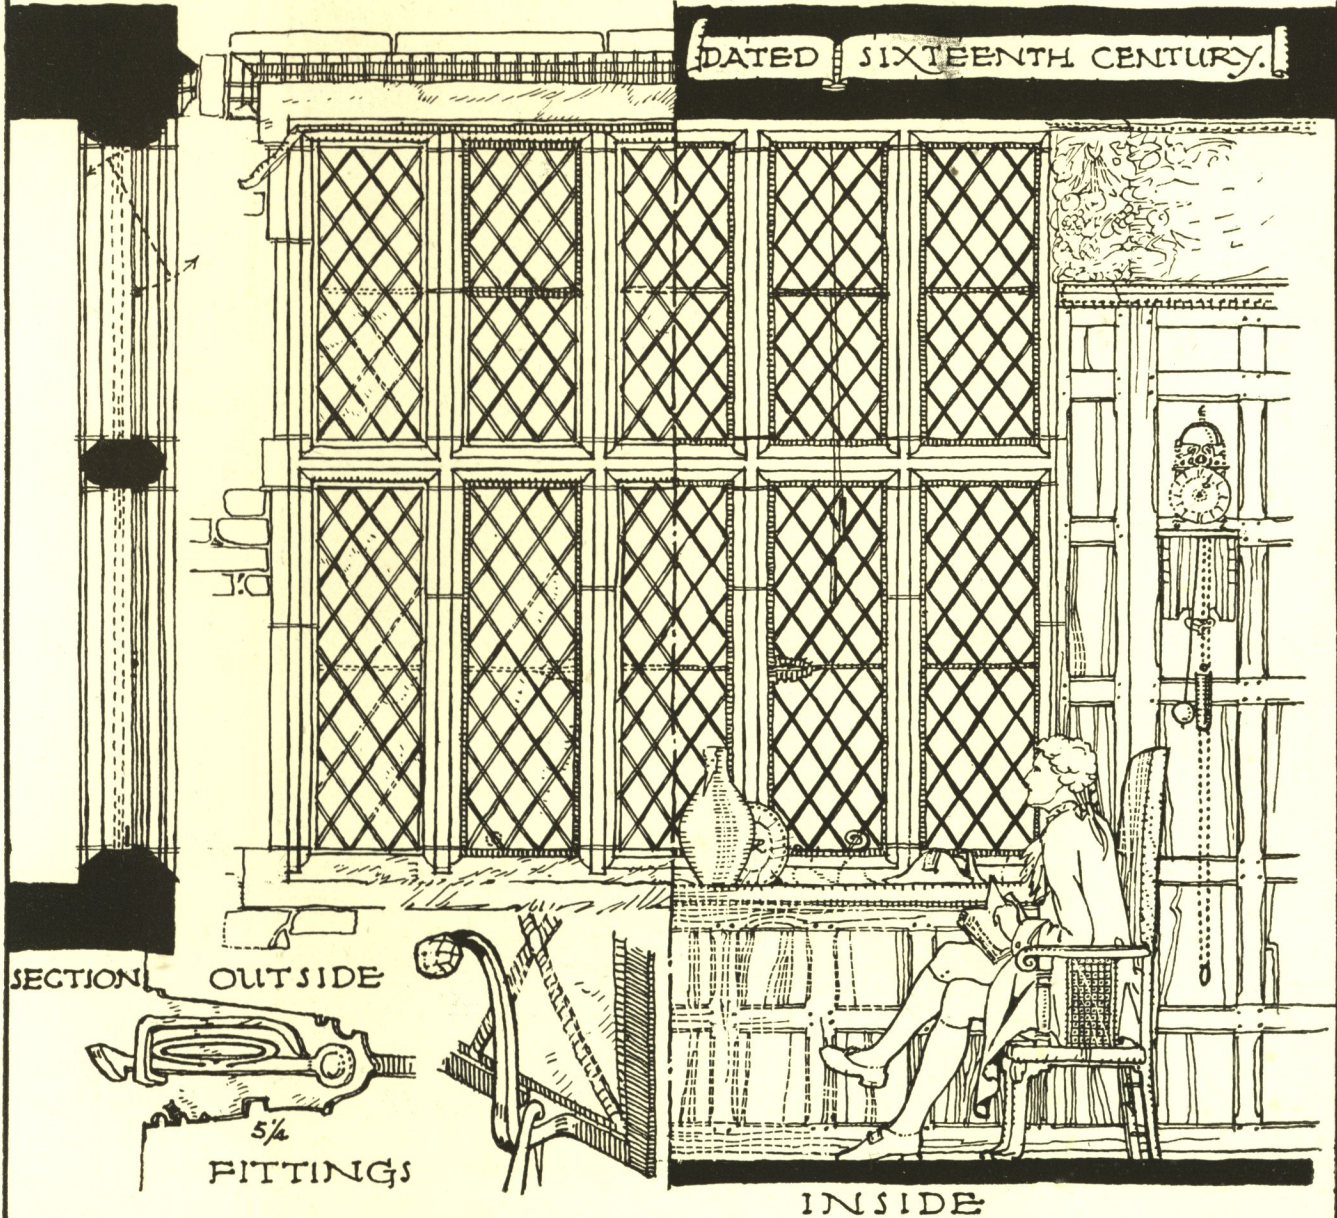 DATED SIXTEENTH CENTURY.
SECTION
OUTSIDE
5¼
FITTINGS
INSIDE